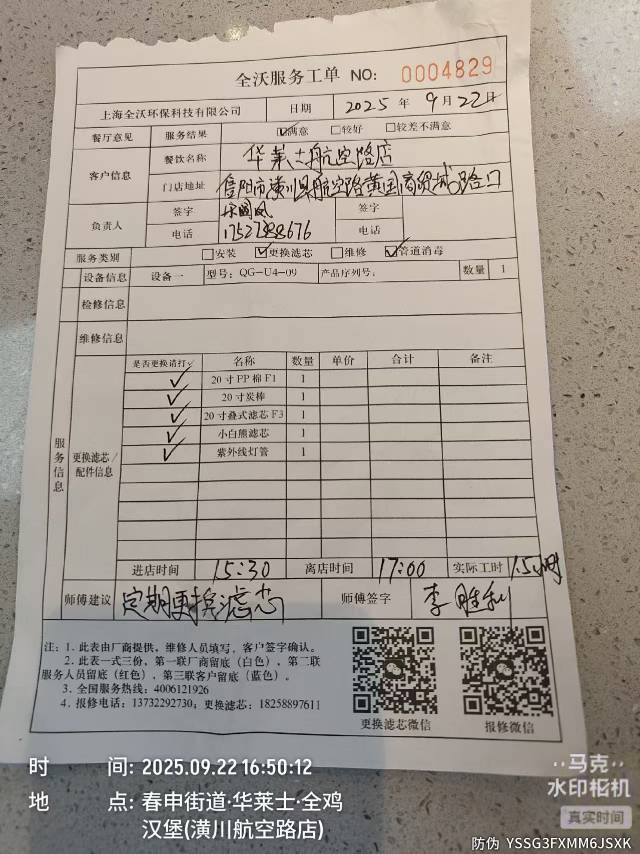 全沃服务工单 NO: 0004829
上海全沃环保科技有限公司 日期 2025 年 9月22日
餐厅意见 服务结果 ☑满意 □较好 □较差不满意
客户信息 餐饮名称 华莱士航空路店
门店地址 信阳市潢川县航空路黄国商贸城路口
负责人 签字 签字
电话 17527388676 电话
服务类别 □安装 ☑更换滤芯 □维修 ☑管道消毒
设备信息 设备一 型号: QG-U4-09 产品序列号: 数量 1
检修信息
维修信息
服务信息 更换滤芯/配件信息
是否更换请打✓ 名称 数量 单价 合计 备注
✓ 20寸PP棉F1 1
✓ 20寸炭棒 1
✓ 20寸叠式滤芯F3 1
✓ 小白熊滤芯 1
✓ 紫外线灯管 1
进店时间 15:30 离店时间 17:00 实际工时 1.5小时
师傅建议 定期更换滤芯 师傅签字 李胜利
注: 1. 此表由厂商提供, 维修人员填写, 客户签字确认。
2. 此表一式三份, 第一联厂商留底(白色), 第二联
服务人员留底(红色), 第三联客户留底(蓝色)。
3. 全国服务热线: 4006121926
4. 报修电话: 13732292730; 更换滤芯: 18258897611
更换滤芯微信 报修微信
时 间: 2025.09.22 16:50:12
地 点: 春申街道·华莱士·全鸡
汉堡(潢川航空路店)
马克
水印相机
真实时间
防伪 YSSG3FXMM6JSXK